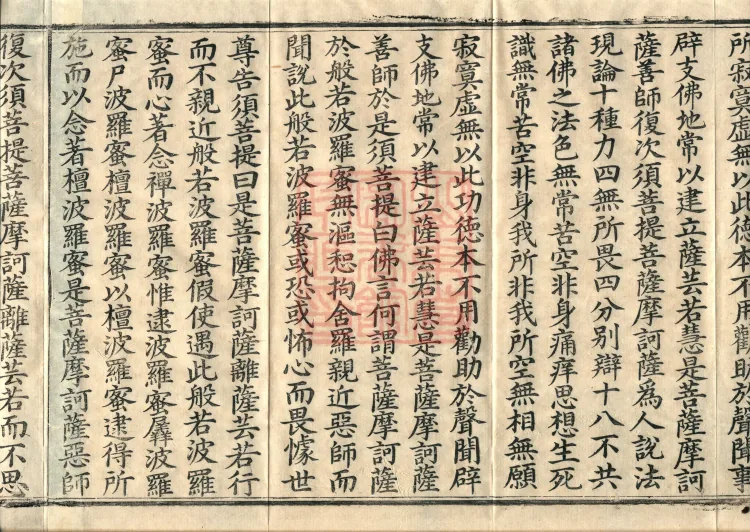 所寂寞虛無以此德本不用勸助於聲聞事
辟支佛地常以建立薩芸若慧是菩薩摩訶
薩善師復次須菩提菩薩摩訶薩爲人說法
現論十種力四無所畏四分別辯十八不共
諸佛之法色無常苦空非身痛痒思想生死
識無常苦空非身我所非我所空無相無願
寂寞虛無以此功德本不用勸助於聲聞辟
支佛地常以建立薩芸若慧是菩薩摩訶薩
善師於是須菩提曰佛言何謂菩薩摩訶薩
於般若波羅蜜無漚惒拘舍羅親近惡師而
聞說此般若波羅蜜或恐或怖心而畏懅世
尊告須菩提曰是菩薩摩訶薩離薩芸若行
而不親近般若波羅蜜假使遇此般若波羅
蜜而心著念禪波羅蜜惟逮波羅蜜羼波羅
蜜尸波羅蜜檀波羅蜜以檀波羅蜜逮得所
施而以念著檀波羅蜜是菩薩摩訶薩惡師
復次須菩提菩薩摩訶薩離薩芸若而不思